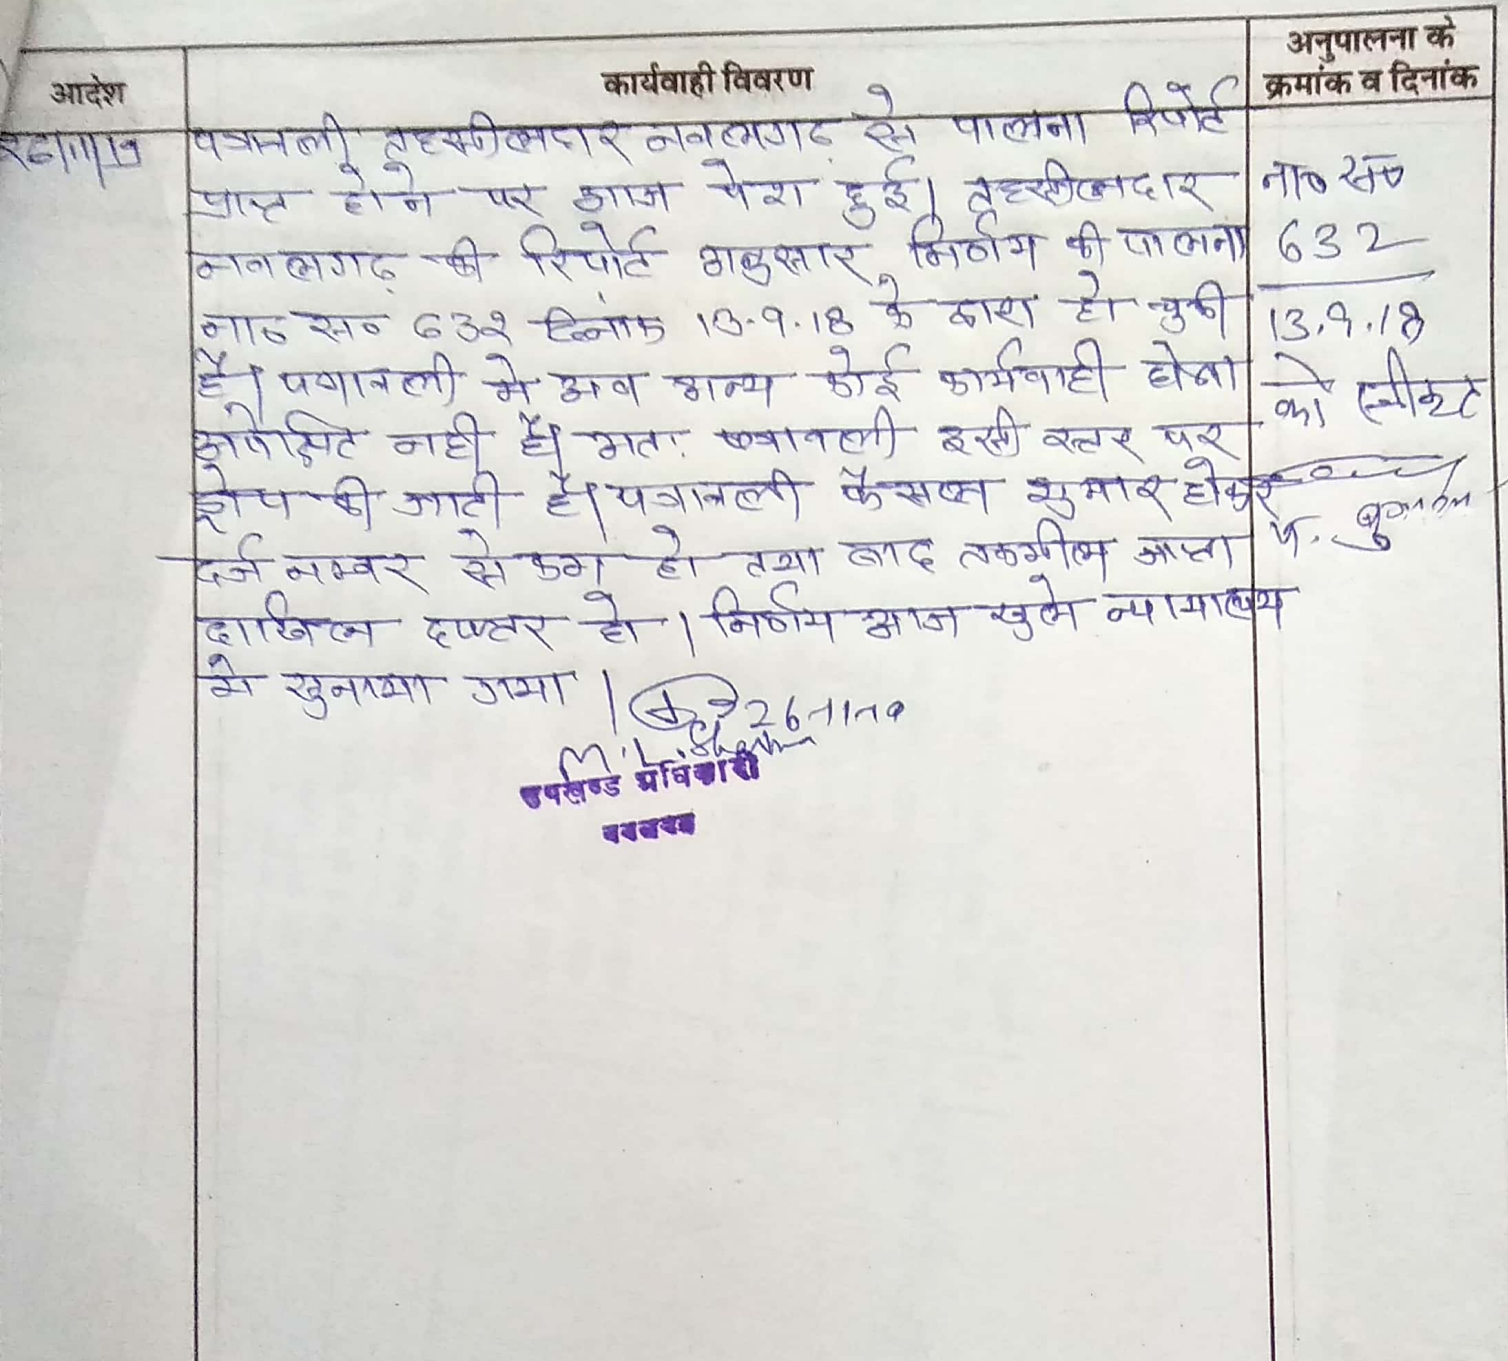 आदेश
कार्यवाही विवरण
अनुपालना के
क्रमांक व दिनांक
पत्रावली तहसीलदार नवलगढ़ से पालना रिपोर्ट
प्राप्त होने पर आज पेश हुई। तहसीलदार
नवलगढ़ की रिपोर्ट अनुसार निर्णय की पालना
ना० स० 632 दिनांक 13.9.18 के द्वारा हो चुकी
है। पत्रावली मे अब अन्य कोई कार्यवाही होना
अपेक्षित नही है। अतः पत्रावली इसी स्तर पर
ड्रोप की जाती है। पत्रावली फैसल शुमार होकर
दर्ज नम्बर से कम हो तथा बाद तकमील जाप्ता
दाखिल दफ्तर हो। निर्णय आज खुले न्यायालय
मे सुनाया गया।
ना० स०
632
13.9.18
को स्वीकृत
उपखण्ड अधिकारी
नवलगढ़